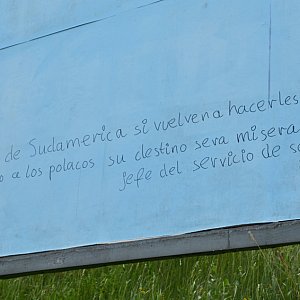 de Sudamerica si vuelven a hacerles
o a los polacos su destino sera misera
jefe del servicio de se